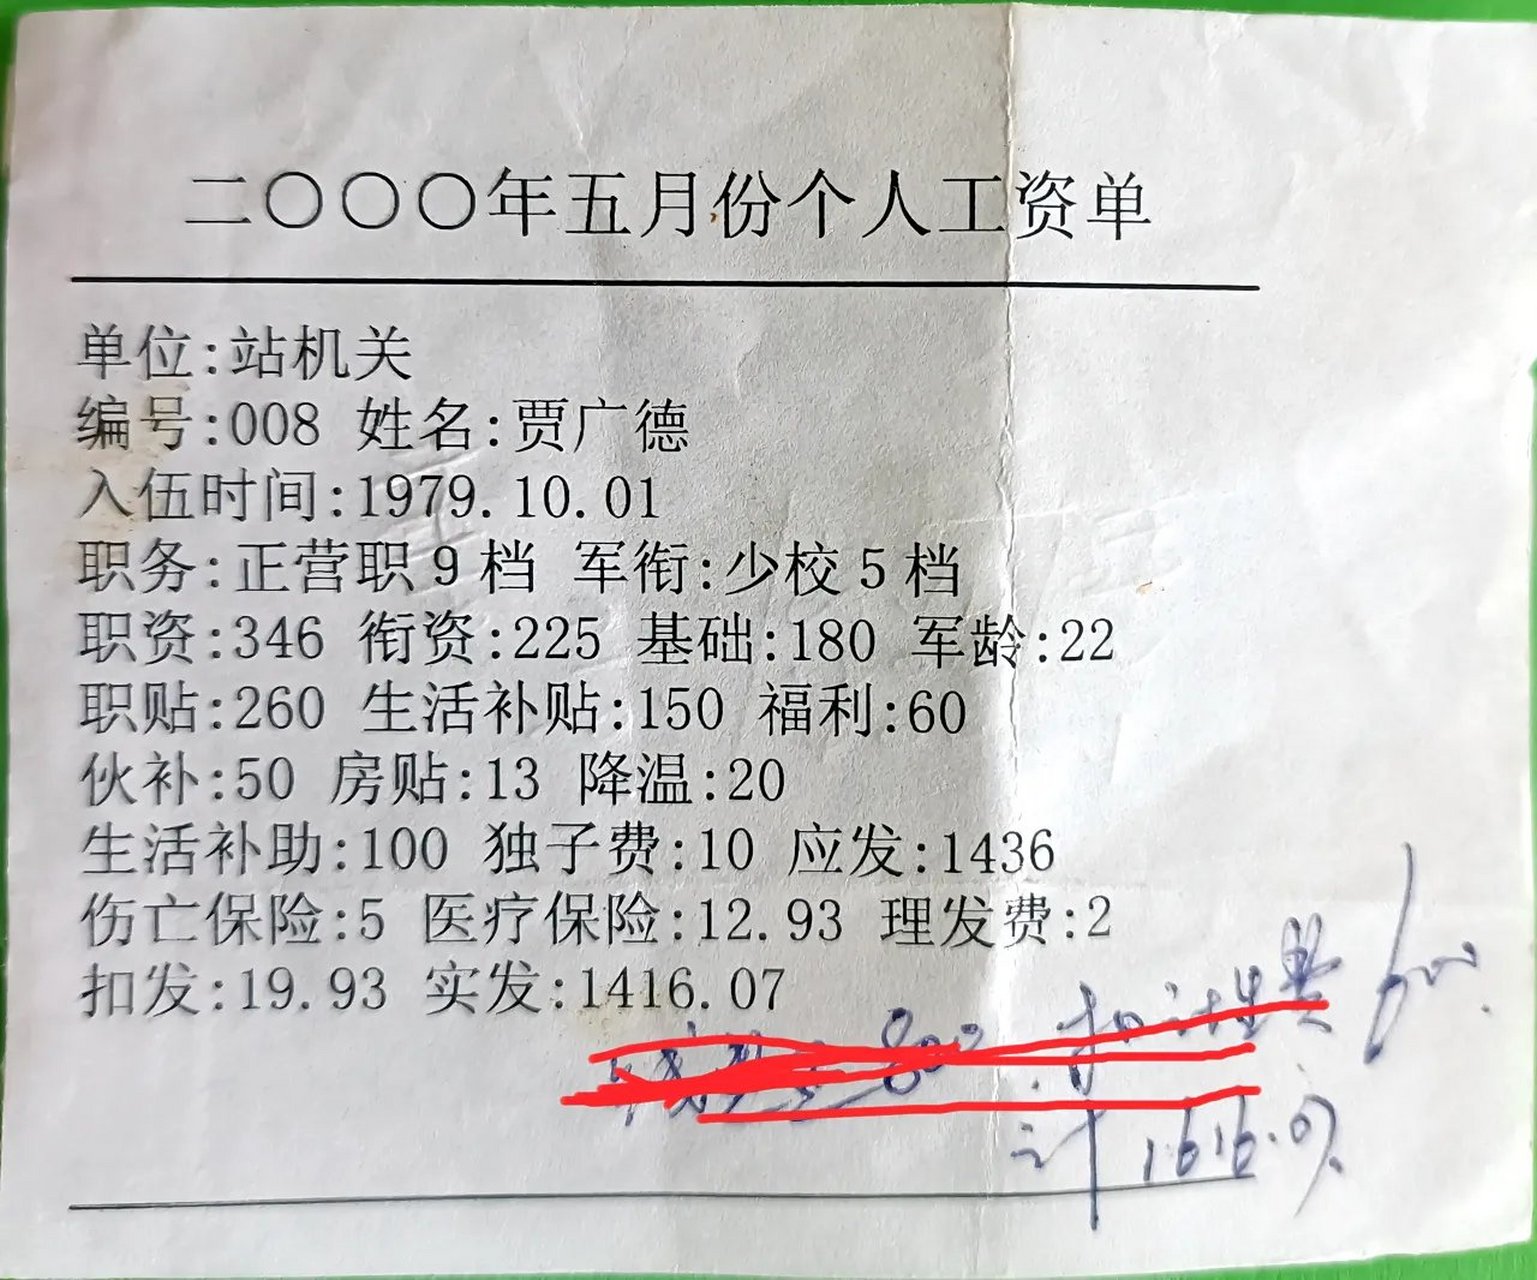 二〇〇〇年五月份个人工资单
单位:站机关
编号:008 姓名:贾广德
入伍时间:1979.10.01
职务:正营职9档 军衔:少校5档
职资:346 衔资:225 基础:180 军龄:22
职贴:260 生活补贴:150 福利:60
伙补:50 房贴:13 降温:20
生活补助:100 独子费:10 应发:1436
伤亡保险:5 医疗保险:12.93 理发费:2
扣发:19.93 实发:1416.07
800 扣 费 600.
计 1616.07